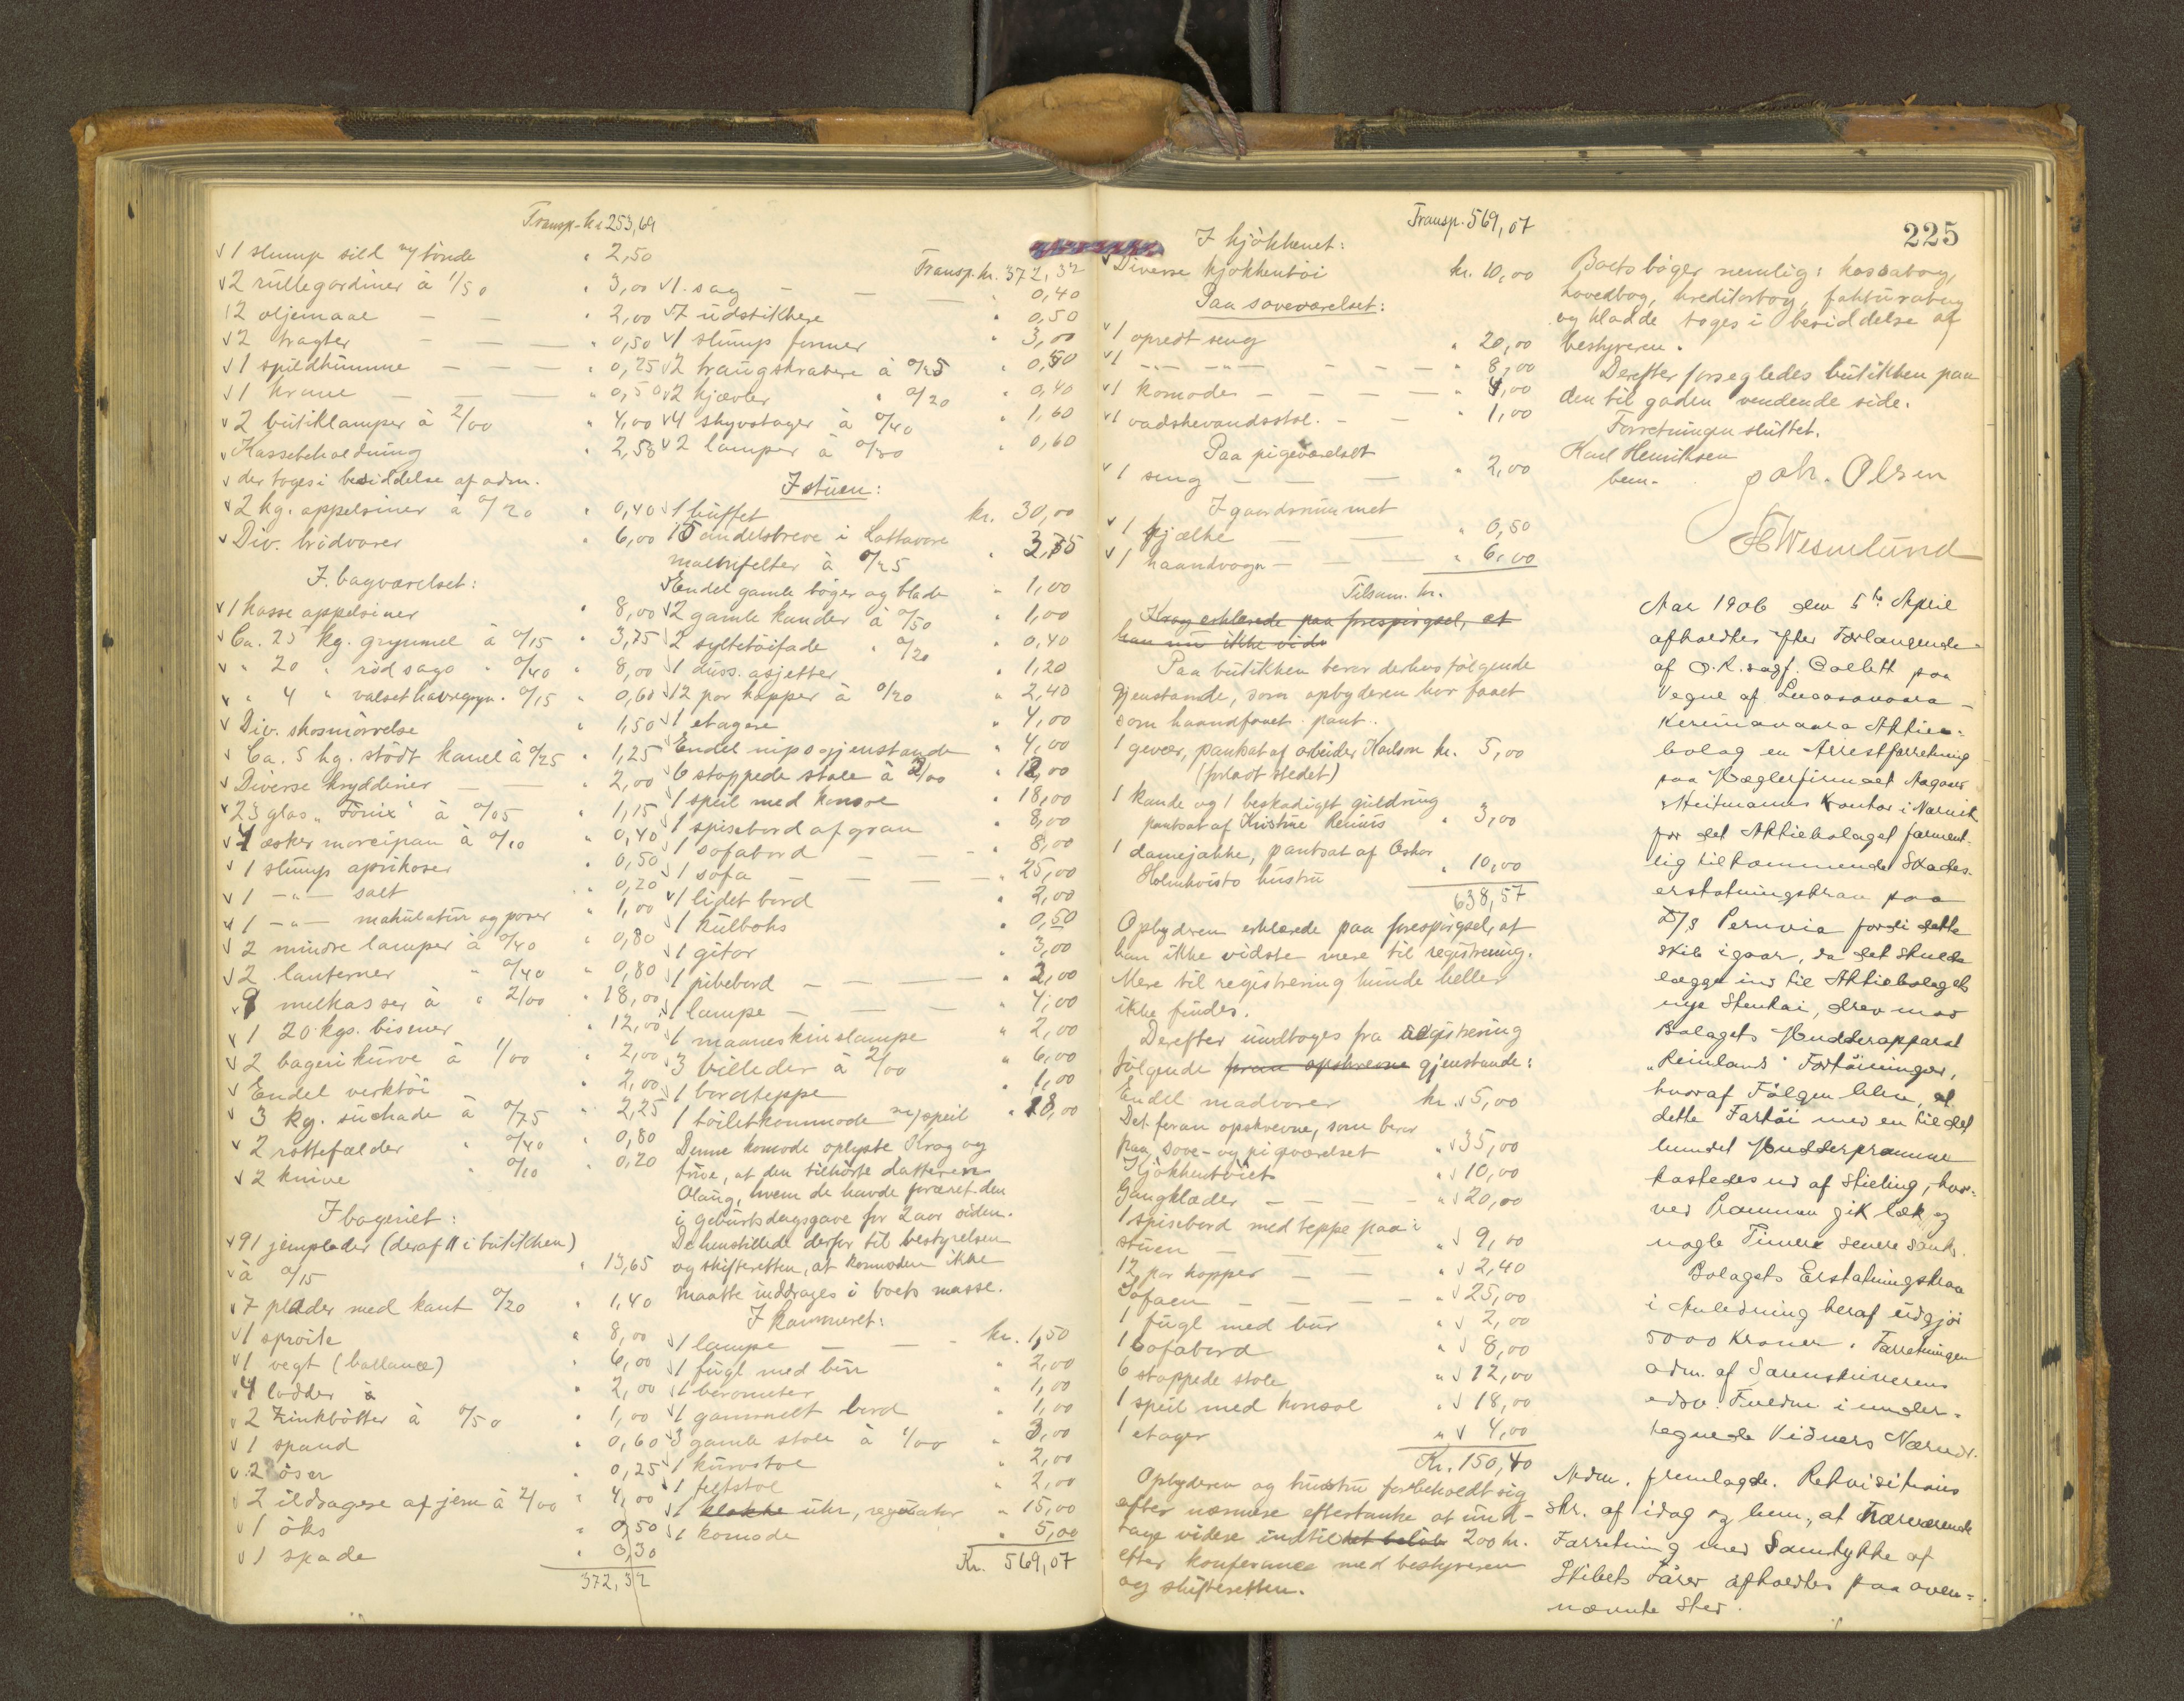 Transp. kr 253,69
1 slump sild m/ tönde " 2,50
2 rullegardiner à 1/50 " 3,00
2 oljemaal — — " 2,00
2 tragter — — — " 0,50
1 spildkumme — — — " 0,25
1 krane — — — " 0,50
2 butiklamper à 2/00 " 4,00
Kassebeholdning " 2,58
der toges i besiddelse af adm.
2 kg. appelsiner à 0/20 " 0,40
Div. brödvarer " 6,00
I bagværelset:
1 kasse appelsiner " 8,00
Ca. 25 kg. grynmel à 0/15 " 3,75
" 20 " röd sago " 0/40 " 8,00
" 4 " valset havregryn " 0/15 " 0,60
Div. skosmörrelse 1,50
Ca. 5 hg. stödt kanel à 0/25 " 1,25
Diverse krydderier — — 2,00
23 glas "Fönix" à 0/05 " 1,15
4 æsker marcipan à 0/10 " 0,40
1 slump aprikoser " 0,50
1 —"— salt " 0,20
1 —"— makulatur og poser " 1,00
2 mindre lamper à 0/40 " 0,80
2 lanterner " 0/40 " 0,80
9 melkasser à " 2/00 " 18,00
1 20 kgs. bismer " 12,00
2 bagerikurve à 1/00 " 2,00
Endel verktöi " 2,00
3 kg. suchade à 0/75 " 2,25
2 rottefælder " 0/40 " 0,80
2 knive " 0/10 " 0,20
I bageriet:
91 jernplader (deraf 11 i butikken)
à 0/15 " 13,65
7 plader med kant 0/20 " 1,40
1 sproite " 8,00
1 vegt (ballance) " 6,00
4 lodder à " 2,00
2 Zinkbötter à 0/50 " 1,00
1 spand " 0,60
2 öser " 0,25
2 ildragere af jern à 2/00 " 4,00
1 öks " 0,50
1 spade " 0,30
372,32
Transp. kr. 372,32
1 sag — — " 0,40
7 udstikkere " 0,50
1 slump former " 3,00
2 traugskrabere à 0/25 " 0,50
2 kjævler " 0/20 " 0,40
4 skyvstager à 0/40 " 1,60
2 lamper à 0/30 " 0,60
I stuen:
1 buffet kr. 30,00
15 andelsbreve i Lattavare
malmfelter à 0/25 " 3,75
Endel gamle böger og blade " 1,00
2 gamle kander à 0/50 " 1,00
2 syltetöifade " 0/20 " 0,40
1 duss. asjetter " 1,20
12 par kopper à 0/20 " 2,40
1 etagere " 4,00
Endel nipsgjenstande " 4,00
6 stoppede stole à 2/00 " 12,00
1 speil med konsol " 18,00
1 spisebord af gran " 8,00
1 sofabord — — " 8,00
1 sofa — — — " 25,00
1 lidet bord " 2,00
1 kulboks " 0,50
1 gitar " 3,00
1 pibebord — — — " 2,00
1 lampe — — — " 4,00
1 maaneskinslampe " 2,00
3 billeder à 2/00 " 6,00
1 bordteppe " 1,00
1 toiletkommode m/speil " 18,00
Denne komode oplyste Krag og
frue, at den tilhörte datteren
Olaug, hvem de havde foræret den
i geburtsdagsgave for 2 aar siden.
De henstillede derfor til bestyrelsen
og skifteretten, at komoden ikke
maatte inddrages i boets masse.
I kammeret:
1 lampe — — kr. 1,50
1 fugl med bur " 2,00
1 barometer " 1,00
1 gammelt bord " 1,00
3 gamle stole à 1/00 " 3,00
1 kurvstol " 2,00
1 feltstol " 2,00
1 klokke uhr, regulator " 15,00
1 komode " 5,00
Kr. 569,07
Transp. 569,07
I kjökkenet:
Diverse kjökkentöi kr. 10,00
Paa soveværelset:
1 opredt seng " 20,00
1 —"— —"— — — " 8,00
1 komode — — — " 4,00
1 vadskevandsstol. — " 1,00
Paa pigeværelset
1 seng — — " 2,00
I gaardsrummet
1 kjælke — — " 0,50
1 haandvogn — — " 6,00
Tilsam. kr.
Krag erklærede paa forespörgsel, at
han nu ikke vidste
Paa butikken beror derhos fölgende
gjenstande, som opbyderen har faaet
som haandfaaet pant.
1 gevær, pantsat af arbeider Karlson kr. 5,00
(forladt stedet)
1 kande og 1 beskadiget guldring
pantsat af Kristine Renius " 3,00
1 damejakke, pantsat af Oskar
Holmkvists hustru " 10,00
638,57
Opbyderen erklærede paa forespörgsel, at
han ikke vidste mere til registrering.
Mere til registrering kunde heller
ikke findes.
Derefter undtoges fra registrering
fölgende foran opskrevne gjenstande:
Endel madvarer kr. 5,00
Det foran opskrevne, som beror
paa sove- og pigeværelset " 35,00
Kjökkentöiet " 10,00
Gangklæder — — — " 20,00
1 spisebord med teppe paa i
stuen — — — " 9,00
12 par kopper — — " 2,40
Sofaen — — — — " 25,00
1 fugl med bur " 2,00
1 sofabord " 8,00
6 stoppede stole " 12,00
1 speil med konsol " 18,00
1 etager " 4,00
Kr. 150,40
Opbyderen og hustru forbeholdt sig
efter nærmere eftertanke at und-
tage videre indtil det belöb 200 kr.
efter konferance med bestyreren
og skifteretten.
225
Boets böger nemlig: kassabog,
hovedbog, kreditorbog, fakturabog
og kladde toges i besiddelse af
bestyreren.
Derefter forsegledes butikken paa
den til gaden vendende side.
Forretningen sluttet.
Karl Henriksen
bem. Joh. Olsen
Wesmlund
Aar 1906 den 5te April
afholdtes efter Forlangende
af O.R.sagf. Collett paa
Vegne af Luossavaara-
Kirunavaara Aktie-
bolag en Arrestforretning
paa Mæglerfirmaet Aagaard
& Heitmanns Kontor i Narvik
for det Aktiebolaget forment-
lig tilkommende Skades-
erstatningskrav paa
D/S Peruvia fordi dette
skib igaar, da det skulde
lægge ind til Aktiebolagets
nye Stenkai, drev mod
Bolagets Mudderapparat
"Reinlands" Fortöininger,
hvoraf Fölgen blev, at
dette Fartöi med en til det
bundet Mudderpramme
kastedes ud af Stilling, hvor-
ved Prammen gik læk og
nogle Timere senere sank.
Bolagets Erstatningskrav
i Anledning heraf udgjör
5000 Kroner. Forretningen
adm. af Sorenskriverens
edsv. Fuldm. i under-
tegnede Vidners Nærvær.
Adm. fremlagde. Rekvisitions
skr. af idag og bem., at nærværende
Forretning med Samtykke af
Skibets Förer afholdtes paa oven-
nævnte Sted.